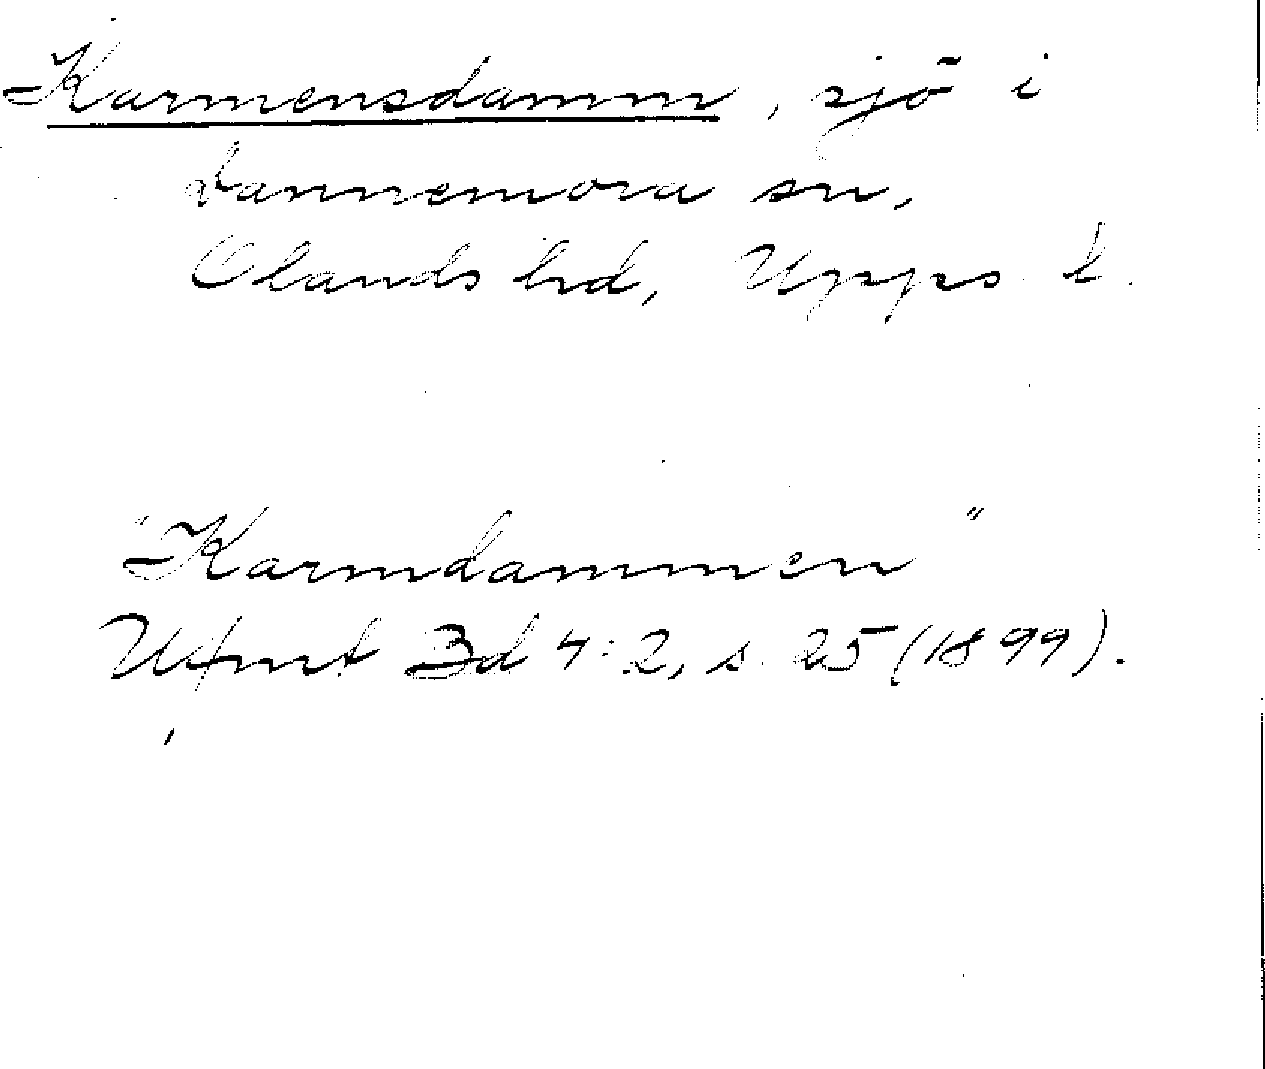 Karmensdamm, sjö i
Dannemora sn,
Olands hd, Upps. l.
"Karmdammen"
Ufmt Bd 4:2, s. 25 (1899).